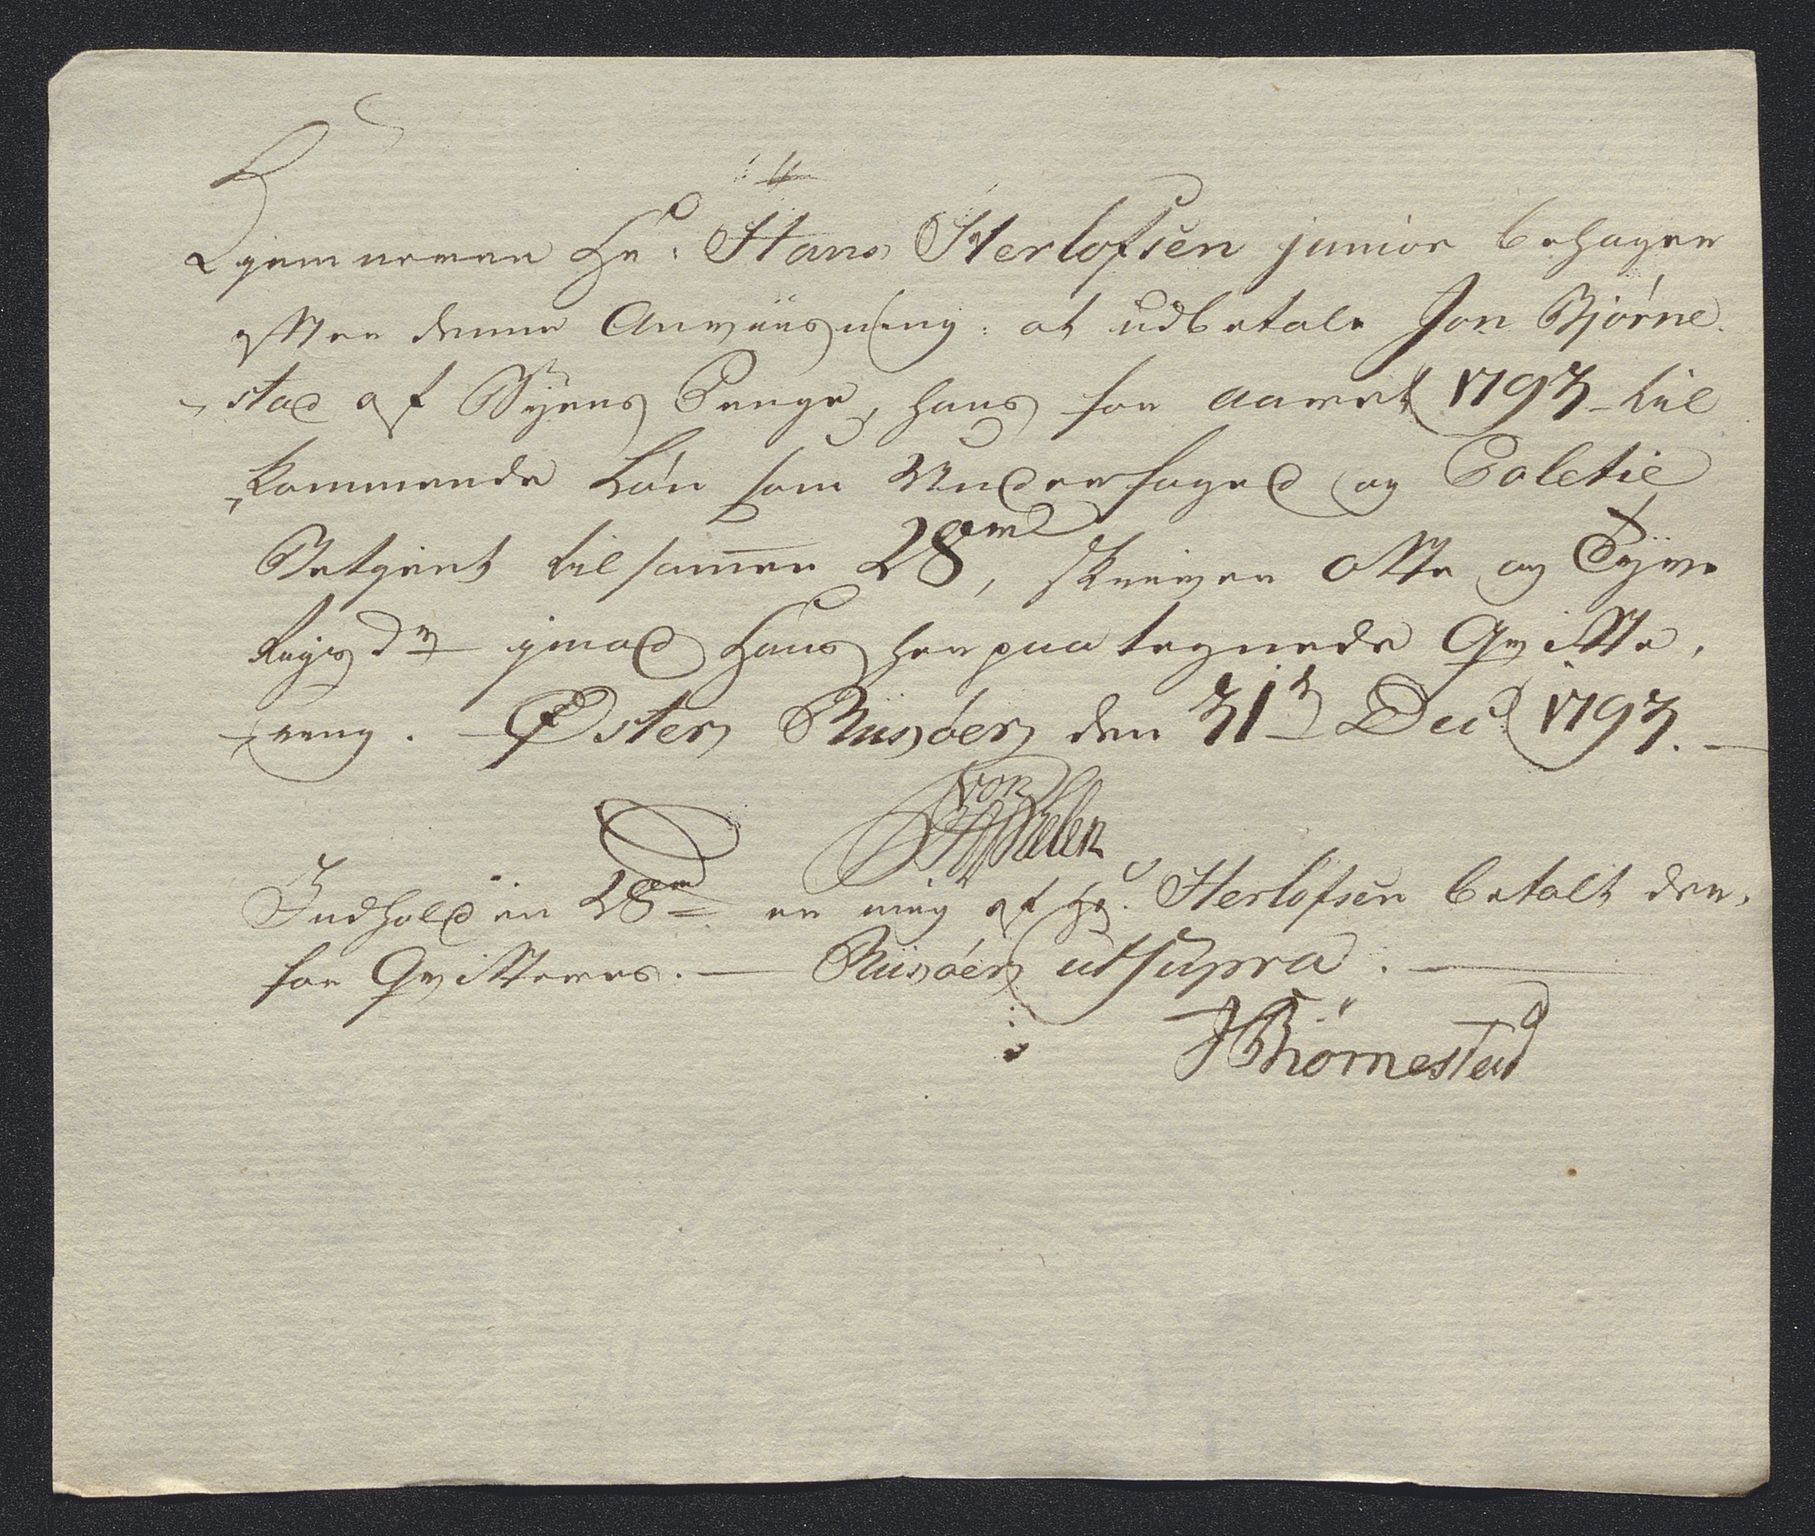 Kjemneren Hr: Hans Herlofsen junior behager
efter denne Anviisning: at udbetale Jon Bjørne-
stad af Byens Penge, hans for aaret 1793 til-
kommende Løn som Underfoged og Poletie
Betjent tilsammen 28rd, skriver Otte og Tyve
Rigsdr imod Hans herpaa tegnede Qvitte-
ring. Øster Riisøer den 31t Dec. 1793.
von
Indholden 28rd er mig af Hr. Herlofsen betalt der-
for Qvitteres. Riisøer ut supra.
JBiørnestad